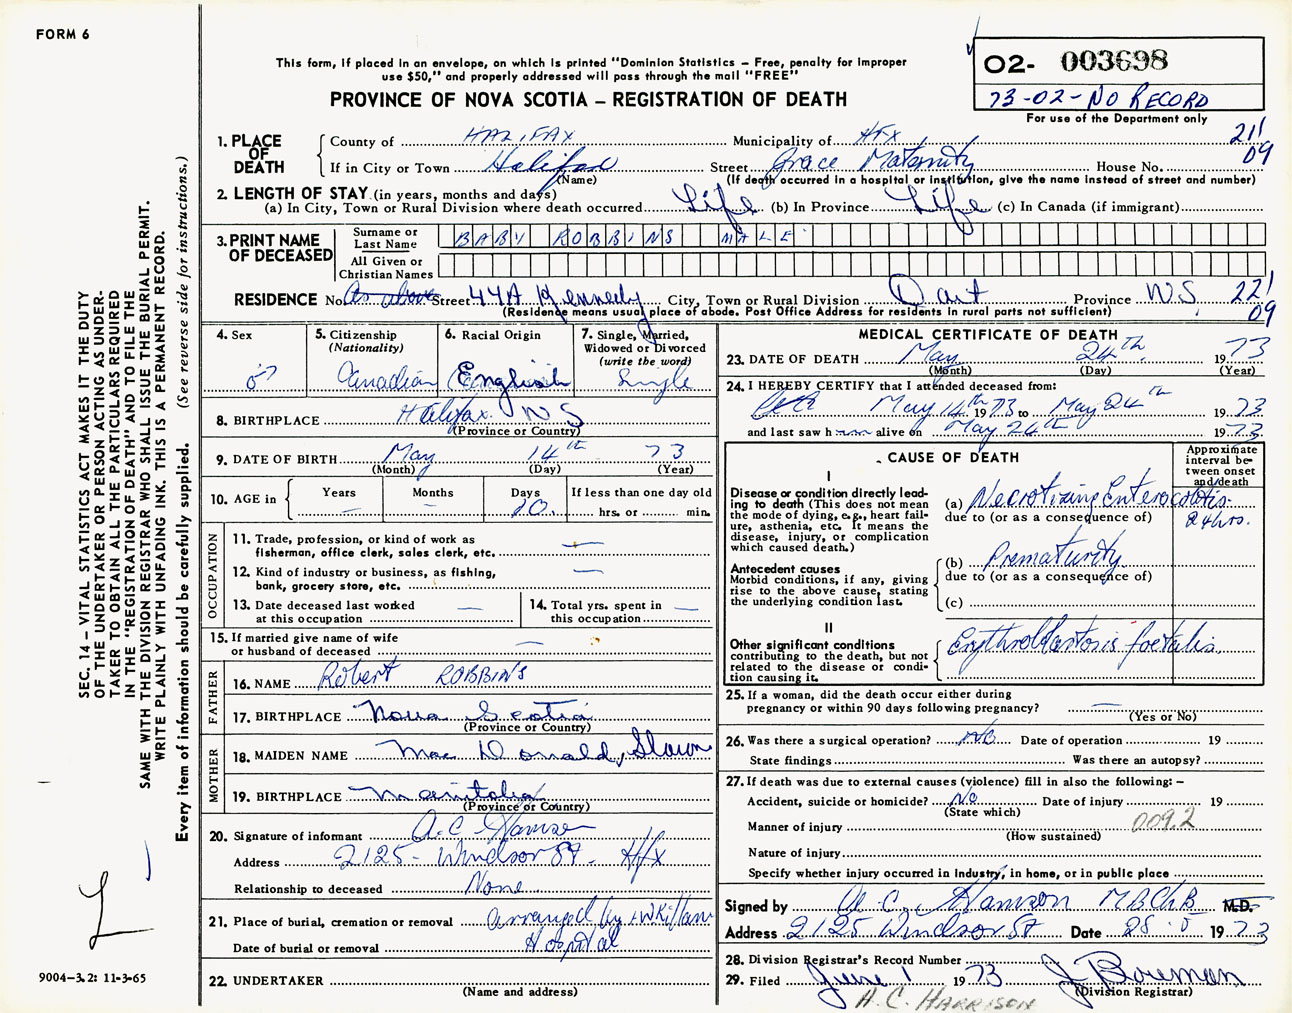 FORM 6
This form, if placed in an envelope, on which is printed "Dominion Statistics — Free, penalty for improper
use $50," and properly addressed will pass through the mail "FREE"
PROVINCE OF NOVA SCOTIA — REGISTRATION OF DEATH
02- 003698
73-02-NO RECORD
For use of the Department only
1. PLACE OF DEATH
County of HALIFAX Municipality of HFX 211
If in City or Town Halifax Street Grace Maternity House No. 09
(Name) (If death occurred in a hospital or institution, give the name instead of street and number)
2. LENGTH OF STAY (in years, months and days)
(a) In City, Town or Rural Division where death occurred Life (b) In Province Life (c) In Canada (if immigrant)
3. PRINT NAME OF DECEASED
Surname or Last Name BABY ROBBINS MALE
All Given or Christian Names
RESIDENCE No. As above Street 44A Kennedy City, Town or Rural Division Dart Province NS 221
(Residence means usual place of abode. Post Office Address for residents in rural parts not sufficient) 09
4. Sex ♂
5. Citizenship (Nationality) Canadian
6. Racial Origin English
7. Single, Married, Widowed or Divorced (write the word) Single
8. BIRTHPLACE Halifax NS
(Province or Country)
9. DATE OF BIRTH May 14th 73
(Month) (Day) (Year)
10. AGE in Years — Months — Days 10. If less than one day old
hrs. or min.
OCCUPATION
11. Trade, profession, or kind of work as
fisherman, office clerk, sales clerk, etc. —
12. Kind of industry or business, as fishing,
bank, grocery store, etc. —
13. Date deceased last worked
at this occupation —
14. Total yrs. spent in
this occupation —
15. If married give name of wife
or husband of deceased —
FATHER
16. NAME Robert ROBBINS
17. BIRTHPLACE Nova Scotia
(Province or Country)
MOTHER
18. MAIDEN NAME Mac Donald,
19. BIRTHPLACE Manitoba
(Province or Country)
20. Signature of informant A.C.
Address 2125- Windsor St. Hfx
Relationship to deceased None
21. Place of burial, cremation or removal arranged by
Date of burial or removal Hospital
22. UNDERTAKER
(Name and address)
MEDICAL CERTIFICATE OF DEATH
23. DATE OF DEATH May 24th 1973
(Month) (Day) (Year)
24. I HEREBY CERTIFY that I attended deceased from:
May 14th 1973 to May 24th 1973
and last saw h alive on May 24th 1973
CAUSE OF DEATH
Approximate interval between onset and/death
I
Disease or condition directly lead-
ing to death (This does not mean
the mode of dying, e.g., heart fail-
ure, asthenia, etc. It means the
disease, injury, or complication
which caused death.)
(a) Necrotizing Enterocolitis
due to (or as a consequence of) 24hrs.
Antecedent causes
Morbid conditions, if any, giving
rise to the above cause, stating
the underlying condition last.
(b) Prematurity
due to (or as a consequence of)
(c)
II
Other significant conditions
contributing to the death, but not
related to the disease or condi-
tion causing it.
Erythroblastosis foetalis.
25. If a woman, did the death occur either during
pregnancy or within 90 days following pregnancy? —
(Yes or No)
26. Was there a surgical operation? No Date of operation 19
State findings Was there an autopsy?
27. If death was due to external causes (violence) fill in also the following: —
Accident, suicide or homicide? No Date of injury 19
(State which)
Manner of injury 009.2
(How sustained)
Nature of injury
Specify whether injury occurred in Industry, in home, or in public place
Signed by A. C. M.B.Ch.B. M.D.
Address 2125 Windsor St Date 28.5 1973
28. Division Registrar's Record Number
29. Filed June 1 1973 J Boreman
(Division Registrar)
A.C. HARRISON
SEC. 14 — VITAL STATISTICS ACT MAKES IT THE DUTY
OF THE UNDERTAKER OR PERSON ACTING AS UNDER-
TAKER TO OBTAIN ALL THE PARTICULARS REQUIRED
IN THE "REGISTRATION OF DEATH" AND TO FILE THE
SAME WITH THE DIVISION REGISTRAR WHO SHALL ISSUE THE BURIAL PERMIT.
WRITE PLAINLY WITH UNFADING INK. THIS IS A PERMANENT RECORD.
Every item of information should be carefully supplied. (See reverse side for instructions.)
9004-3.2: 11-3-65